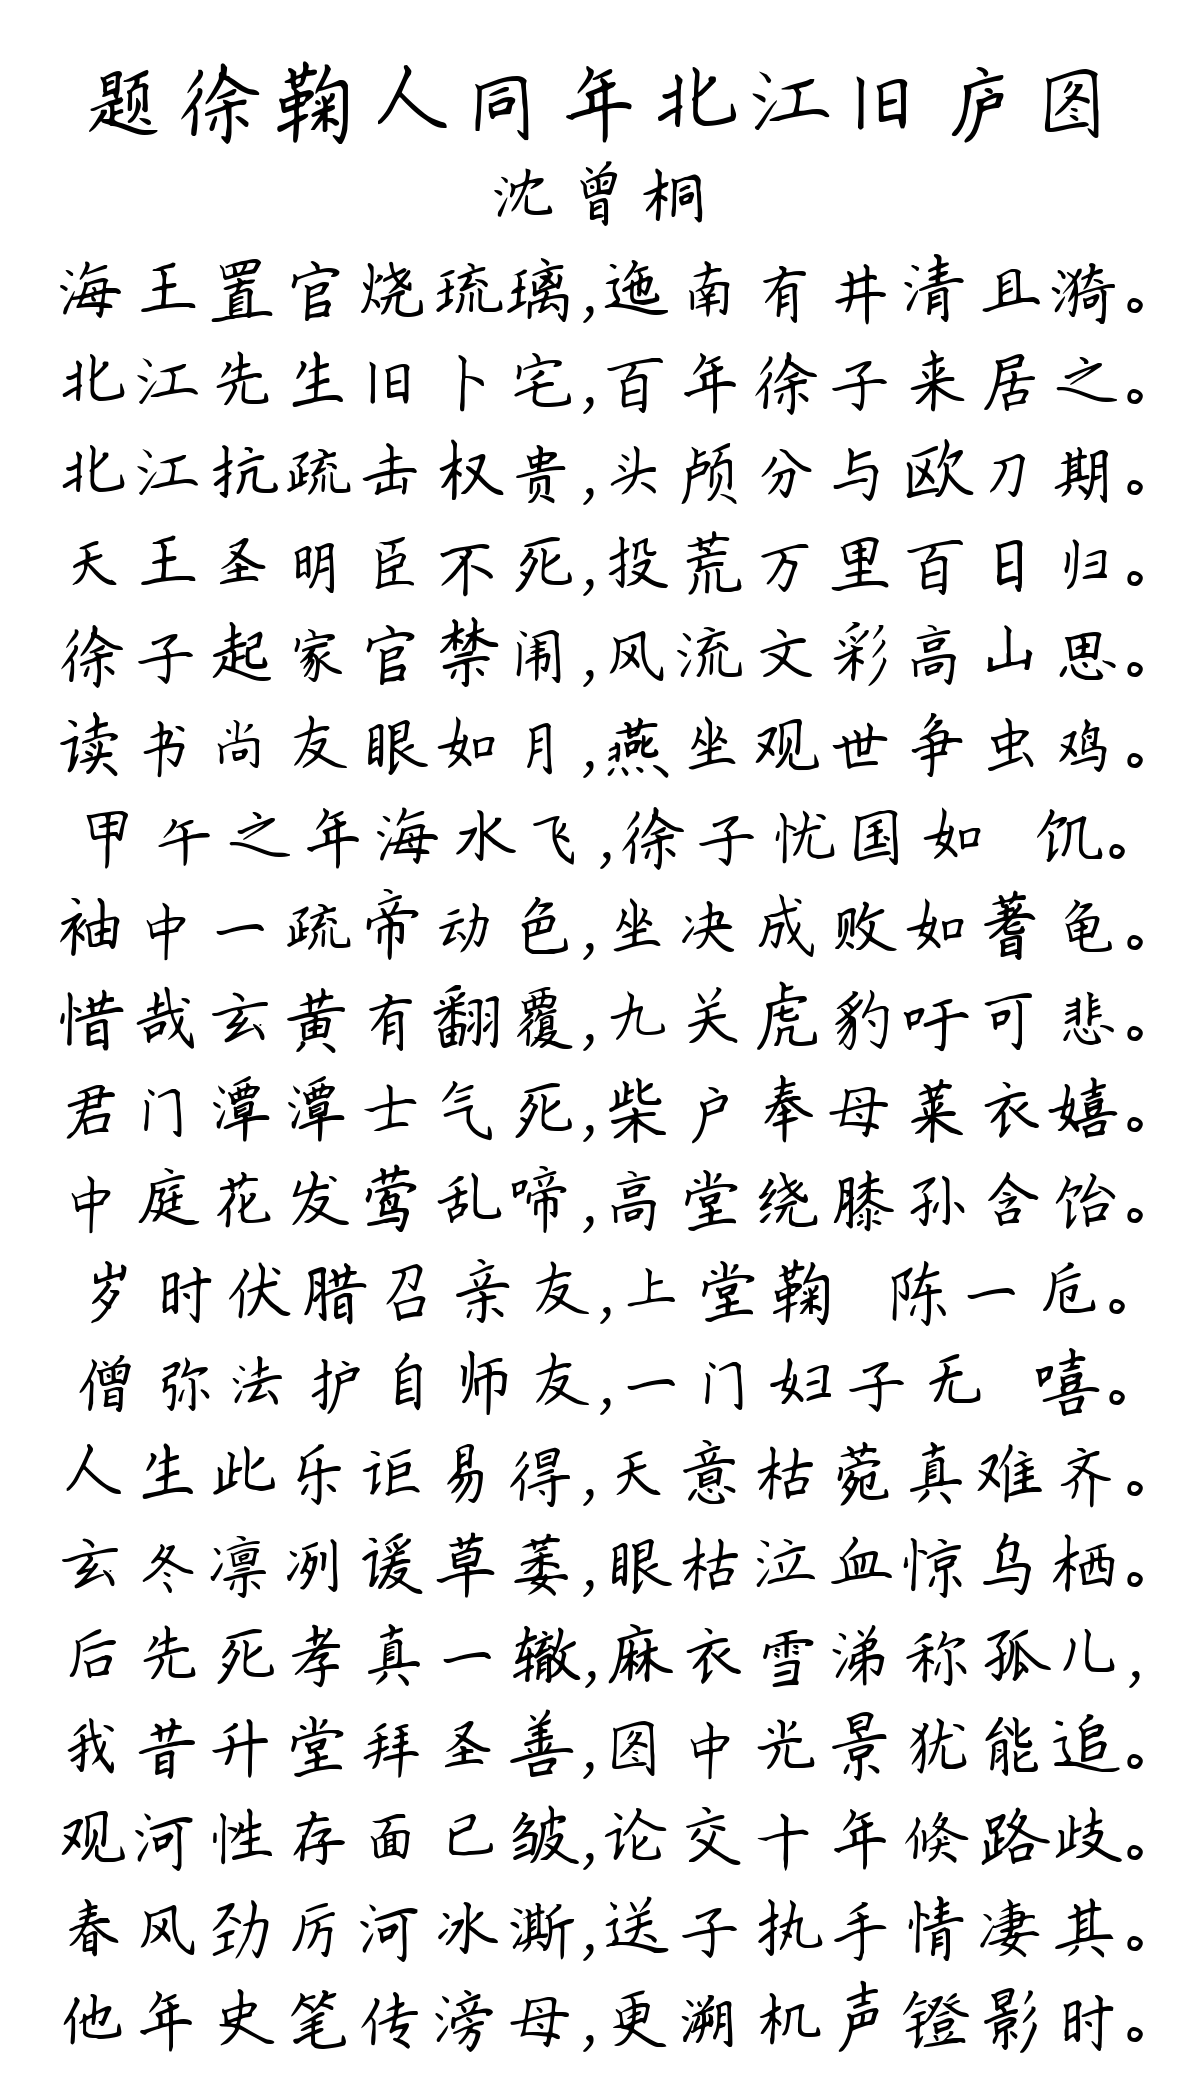 题徐鞠人同年北江旧庐图
沈曾桐
海王置官烧琉璃,迤南有井清且漪。
北江先生旧卜宅,百年徐子来居之。
北江抗疏击权贵,头颅分与欧刀期。
天王圣明臣不死,投荒万里百日归。
徐子起家官禁闱,风流文彩高山思。
读书尚友眼如月,燕坐观世争虫鸡。
甲午之年海水飞,徐子忧国如 饥。
袖中一疏帝动色,坐决成败如蓍龟。
惜哉玄黄有翻覆,九关虎豹吁可悲。
君门潭潭士气死,柴户奉母莱衣嬉。
中庭花发莺乱啼,高堂绕膝孙含饴。
岁时伏腊召亲友,上堂鞠 陈一卮。
僧弥法护自师友,一门妇子无 嘻。
人生此乐讵易得,天意枯菀真难齐。
玄冬凛冽谖草萎,眼枯泣血惊乌栖。
后先死孝真一辙,麻衣雪涕称孤儿,
我昔升堂拜圣善,图中光景犹能追。
观河性存面已皱,论交十年倏路歧。
春风劲厉河冰澌,送子执手情凄其。
他年史笔传滂母,更溯机声镫影时。